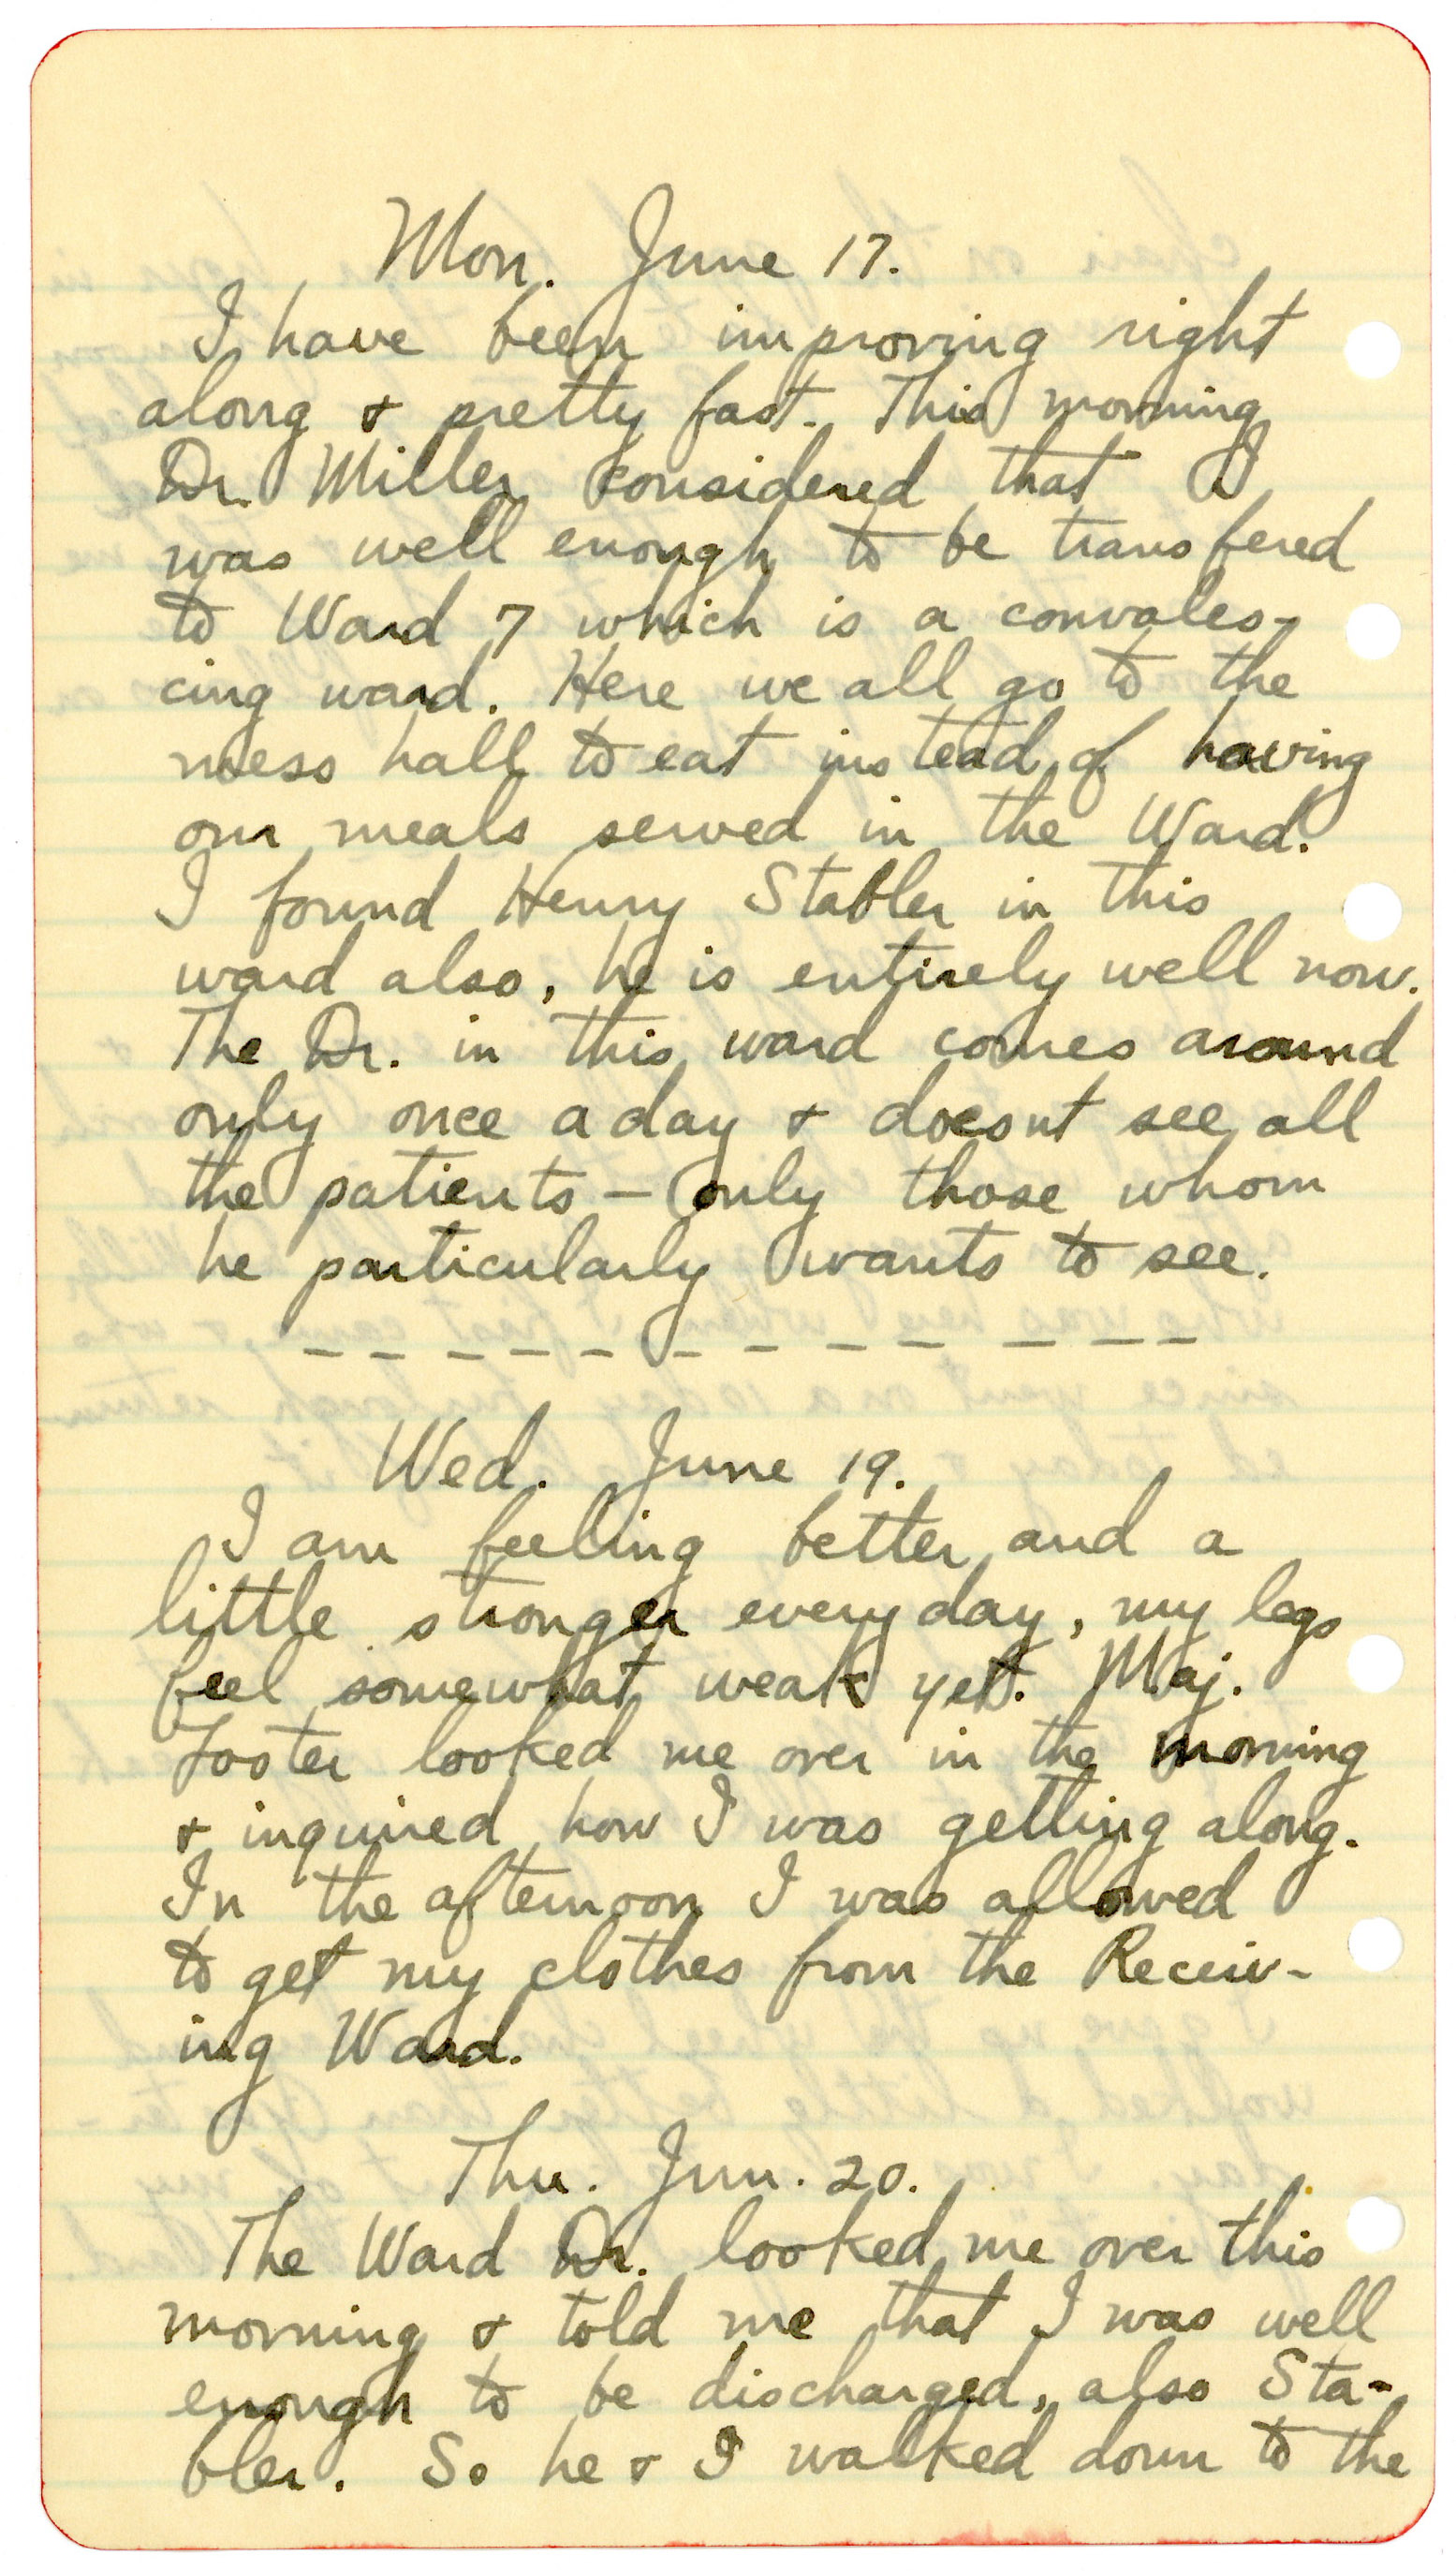 Mon. June 17.
I have been improving right
along & pretty fast. This morning
Dr. Miller considered that I
was well enough to be transfered
to Ward 7 which is a convales-
cing ward. Here we all go to the
mess hall to eat instead of having
our meals served in the Ward.
I found Henry Stabler in this
ward also, he is entirely well now.
The Dr. in this ward comes around
only once a day & doesnt see all
the patients – only those whom
he particularly wants to see.
– – – – – – – – – – – –
Wed. June 19.
I am feeling better and a
little stronger every day, my legs
feel somewhat weak yet. Maj.
Foster looked me over in the morning
& inquired how I was getting along.
In the afternoon I was allowed
to get my clothes from the Receiv-
ing Ward.
Thu. Jun. 20.
The Ward Dr. looked me over this
morning & told me that I was well
enough to be discharged, also Sta-
bler. So he & I walked down to the